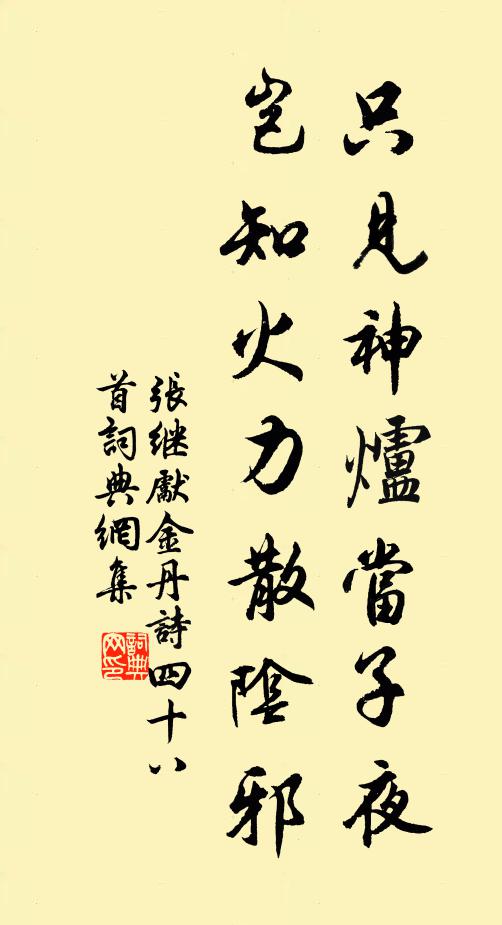 只見神爐當子夜
豈知火力散陰邪
張继獻金丹詩四十八
首詞典網集
詞典
网印